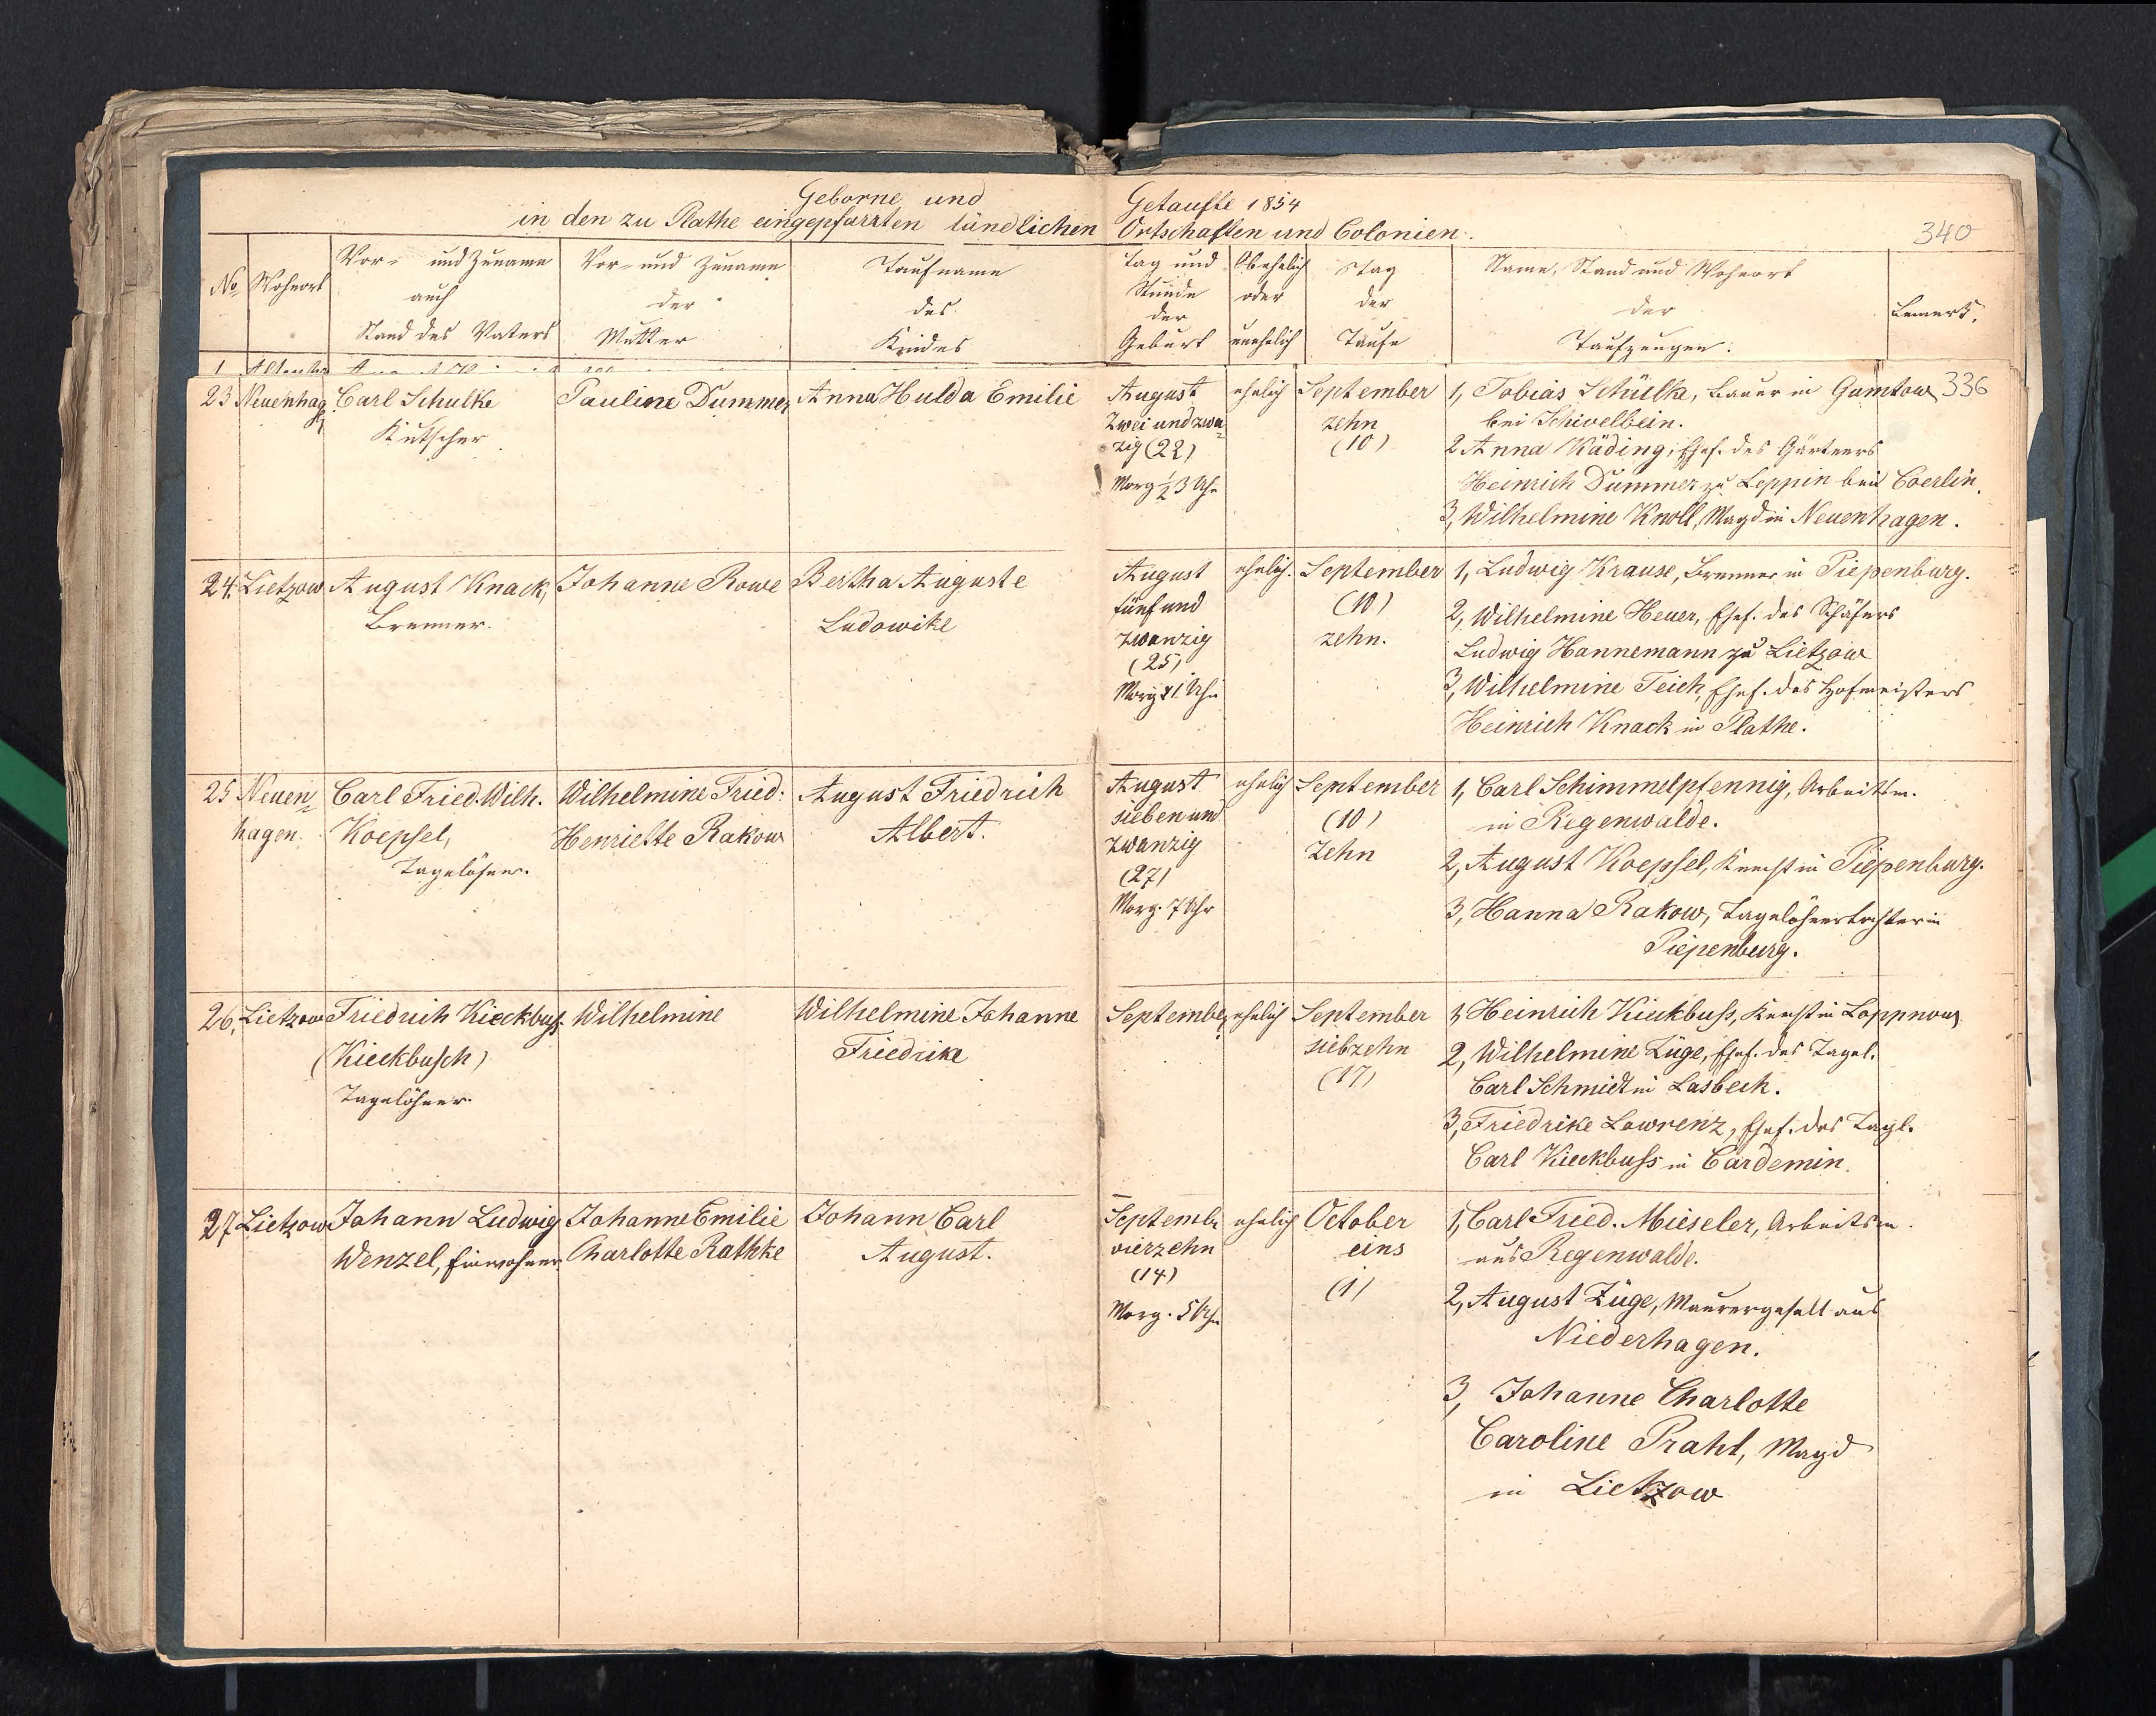 Geborne und Getaufte 1854
in den zu Plathe eingepfarrten ländlichen Ortschaften und Colonien.
340
No. Wohnort
Vor- und Zuname
auch
Stand des Vaters
Vor- und Zuname
der
Mutter
Taufname
des
Kindes
Tag und
Stunde
der
Geburt
Ob ehelich
oder
unehelich
Tag
der
Taufe
Name, Stand und Wohnort
der
Taufzeugen.
Bemerk.
336
23 Neuenhag
Carl Schulke
Kutscher
Pauline Dummer
Anna Hulda Emilie
August
zwei und zwa
zig (22)
Morg ½3 Uhr
ehelich
September
zehn
(10)
1, Tobias Schülke, Bauer in Gumtow
bei Schivelbein.
2 Anna Käding, Ehef. des Gärtners
Heinrich Dummer zu Leppin bei Coerlin.
3, Wilhelmine Knoll, Magd in Neuenhagen.
24. Lietzow
August Knack,
Brenner.
Johanne Rowe
Bertha Auguste
Ludowike
August
fünf und
zwanzig
(25)
Morg 1 Uhr
ehelich.
September
(10)
zehn.
1, Ludwig Krause, Brenner in Piepenburg.
2, Wilhelmine Heuer, Ehef. des Schäfers
Ludwig Hannemann zu Lietzow
3, Wilhelmine Teich, Ehef. des Hofmeisters
Heinrich Knack in Plathe.
25 Neuen
hagen.
Carl Fried. Wilh.
Koepsel,
Tagelöhner.
Wilhelmine Fried:
Henriette Rakow
August Friedrich
Albert.
August
sieben und
zwanzig
(27)
Morg. 7 Uhr
ehelich
September
(10)
zehn
1, Carl Schimmelpfennig, Arbeitsm.
in Regenwalde.
2, August Koepsel, Knecht in Piepenburg.
3, Hanna Rakow, Tagelöhnertochter in
Piepenburg.
26, Lietzow
Friedrich Kieckbuß
(Kieckbusch)
Tagelöhner.
Wilhelmine
Wilhelmine Johanne
Friedrike
September
ehelich
September
siebzehn
(17)
1, Heinrich Kieckbuß, Knecht in Loppnow
2, Wilhelmine Züge, Ehef. des Tagel.
Carl Schmidt in Lasbeck.
3, Friedrike Lawrenz, Ehef. des Tagl.
Carl Kieckbuß in Cardemin.
27 Lietzow
Johann Ludwig
Wenzel, Einwohner
Johanne Emilie
Charlotte Rathke
Johann Carl
August.
Septembr
vierzehn
(14)
Morg. 5 Uhr
ehelich
October
eins
(1)
1, Carl Fried. Mieseler, Arbeitsm.
aus Regenwalde.
2, August Züge, Maurergesell aus
Niederhagen.
3, Johanne Charlotte
Caroline Prahl, Magd
in Lietzow